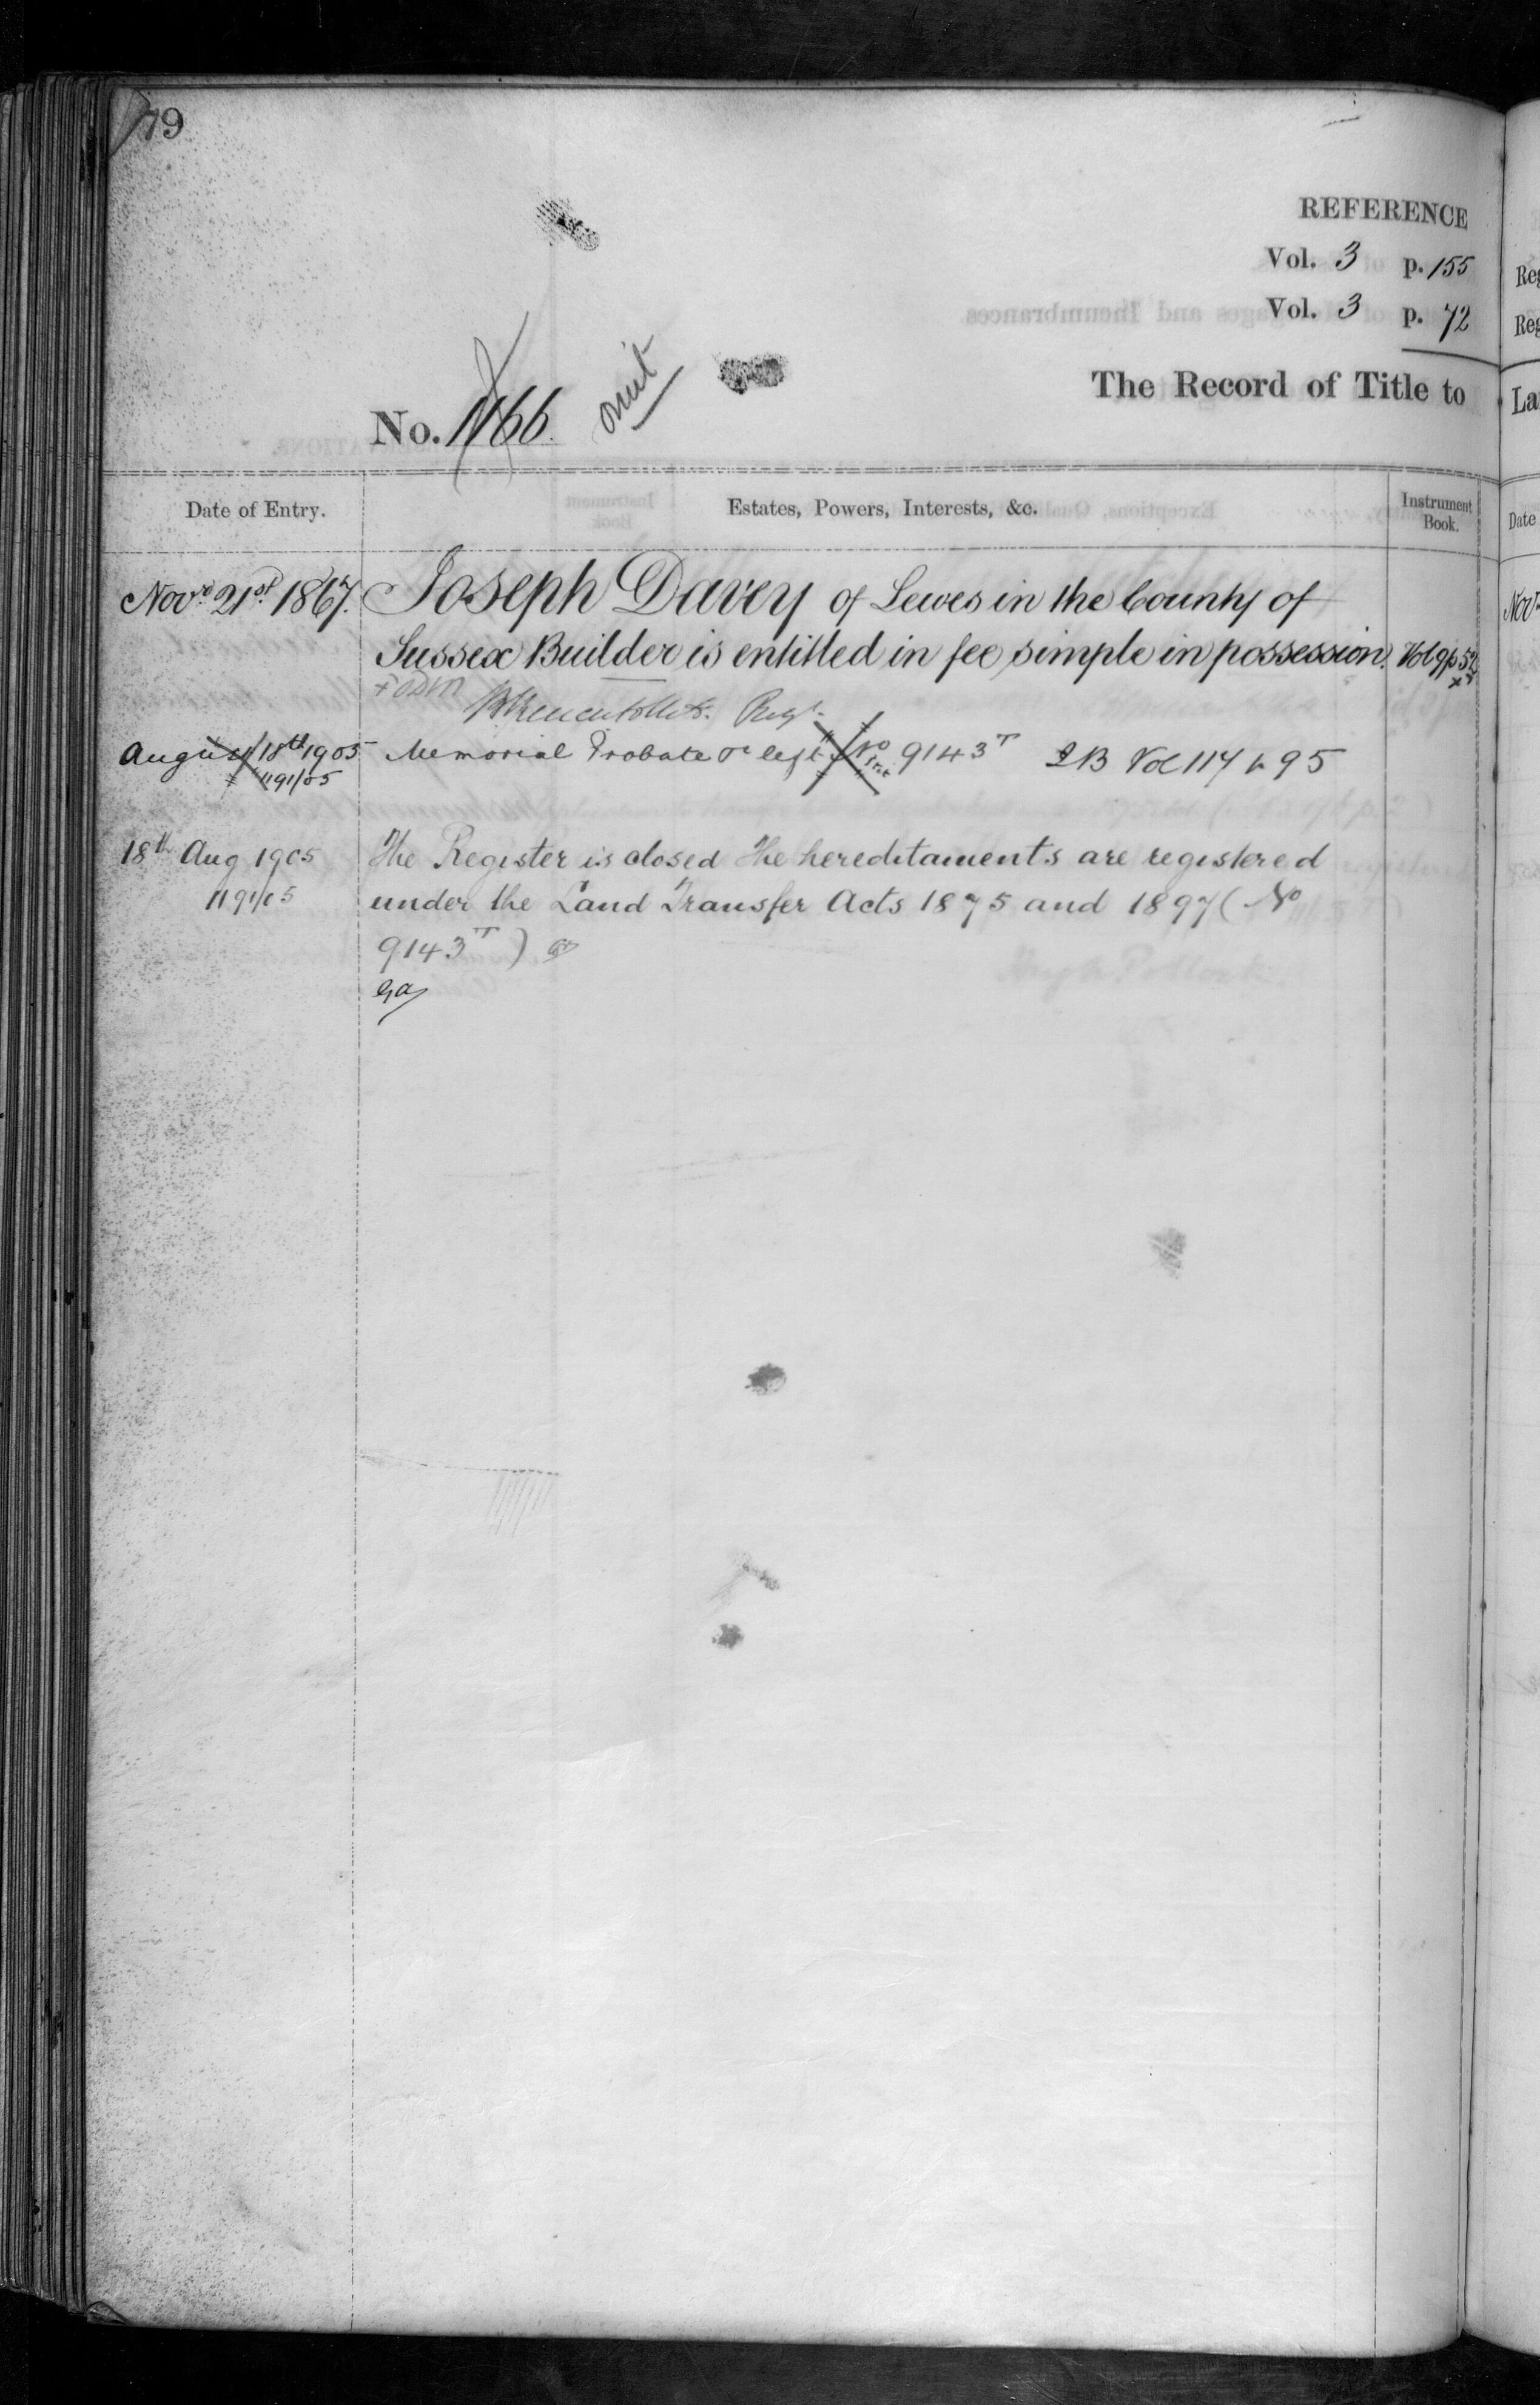 79
REFERENCE
Vol. 3 p. 155
Vol. 3 p. 72
The Record of Title to
No. 1166. omit
Date of Entry.
Estates, Powers, Interests, &c.
Instrument Book.
Novr. 21st. 1867. Joseph Davey of Lewes in the County of
Sussex Builder is entitled in fee simple in possession. Vol 9 p 52
Regr.
August 18th 1905 Memorial Probate &c left No 9143T IB Vol 117 p 95
1191/05
18th Aug 1905 The Register is closed The hereditaments are registered
1191/05 under the Land Transfer Acts 1875 and 1897 (No
9143T)
Reg
Reg
La
Date
Nov